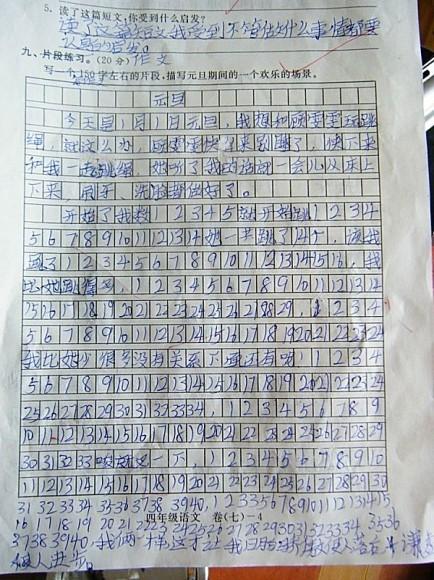 5. 读了这篇短文,你受到什么启发?
读了这篇短文我受到不管做什么事情都要
九、片段练习。(20分) 作文
写一个150字左右的片段,描写元旦期间的一个欢乐的场景。
元旦
今天是1月1日元旦,我想和顾雯雯玩跳
绳,就这么办,顾雯雯快起来别睡了,快下来
和我一起跳绳,她听了我的话就一会儿从床上
下来,刷牙、洗脸都做好了。
开始了我数1 2 3 4 5就开始跳1 2 3 4
5 6 7 8 9 10 11 12 13 14她一共跳了14个,该我
跳了1 2 3 4 5 6 7 8 9 10 11 12 13 14 15 16,我
比她跳得多,1 2 3 4 5 6 7 8 9 10 11 12 13 14
15 16 17 18 19 20 21 22 23 24 25 26 27 28 29,1 2 3 4
5 6 7 8 9 10 11 12 13 14 15 16 17 18 19 20 21 22 23 24
我比她少很多没有关系下面还有呢1 2 3 4
5 6 7 8 9 10 11 12 13 14 15 16 17 18 19 20 21 22 23 24
25 26 27 28 29 30 31 32 33 34,1 2 3 4 5 6 7 8 9
10 11 12 13 14 15 16 17 18 19 20 21 22 23 24 25 26 27 28 29
30 31 32 33 一下,1 2 3 4 5 6 7 8 9 10
11 12 13 14 15 16 17 18 19 20 21 22 23 24 25 26 27 28 29 30
31 32 33 34 35 36 37 38 39 40,1 2 3 5 6 7 8 9 10 11 12 13 14 15
16 17 18 19 20 21 22 23 24 25 26 27 28 29 30 31 32 33 34 35 36
四年级语文 卷(七)-4
37 38 39 40。我俩一样,这才让我日 使人落后 谦虚
使人进步。